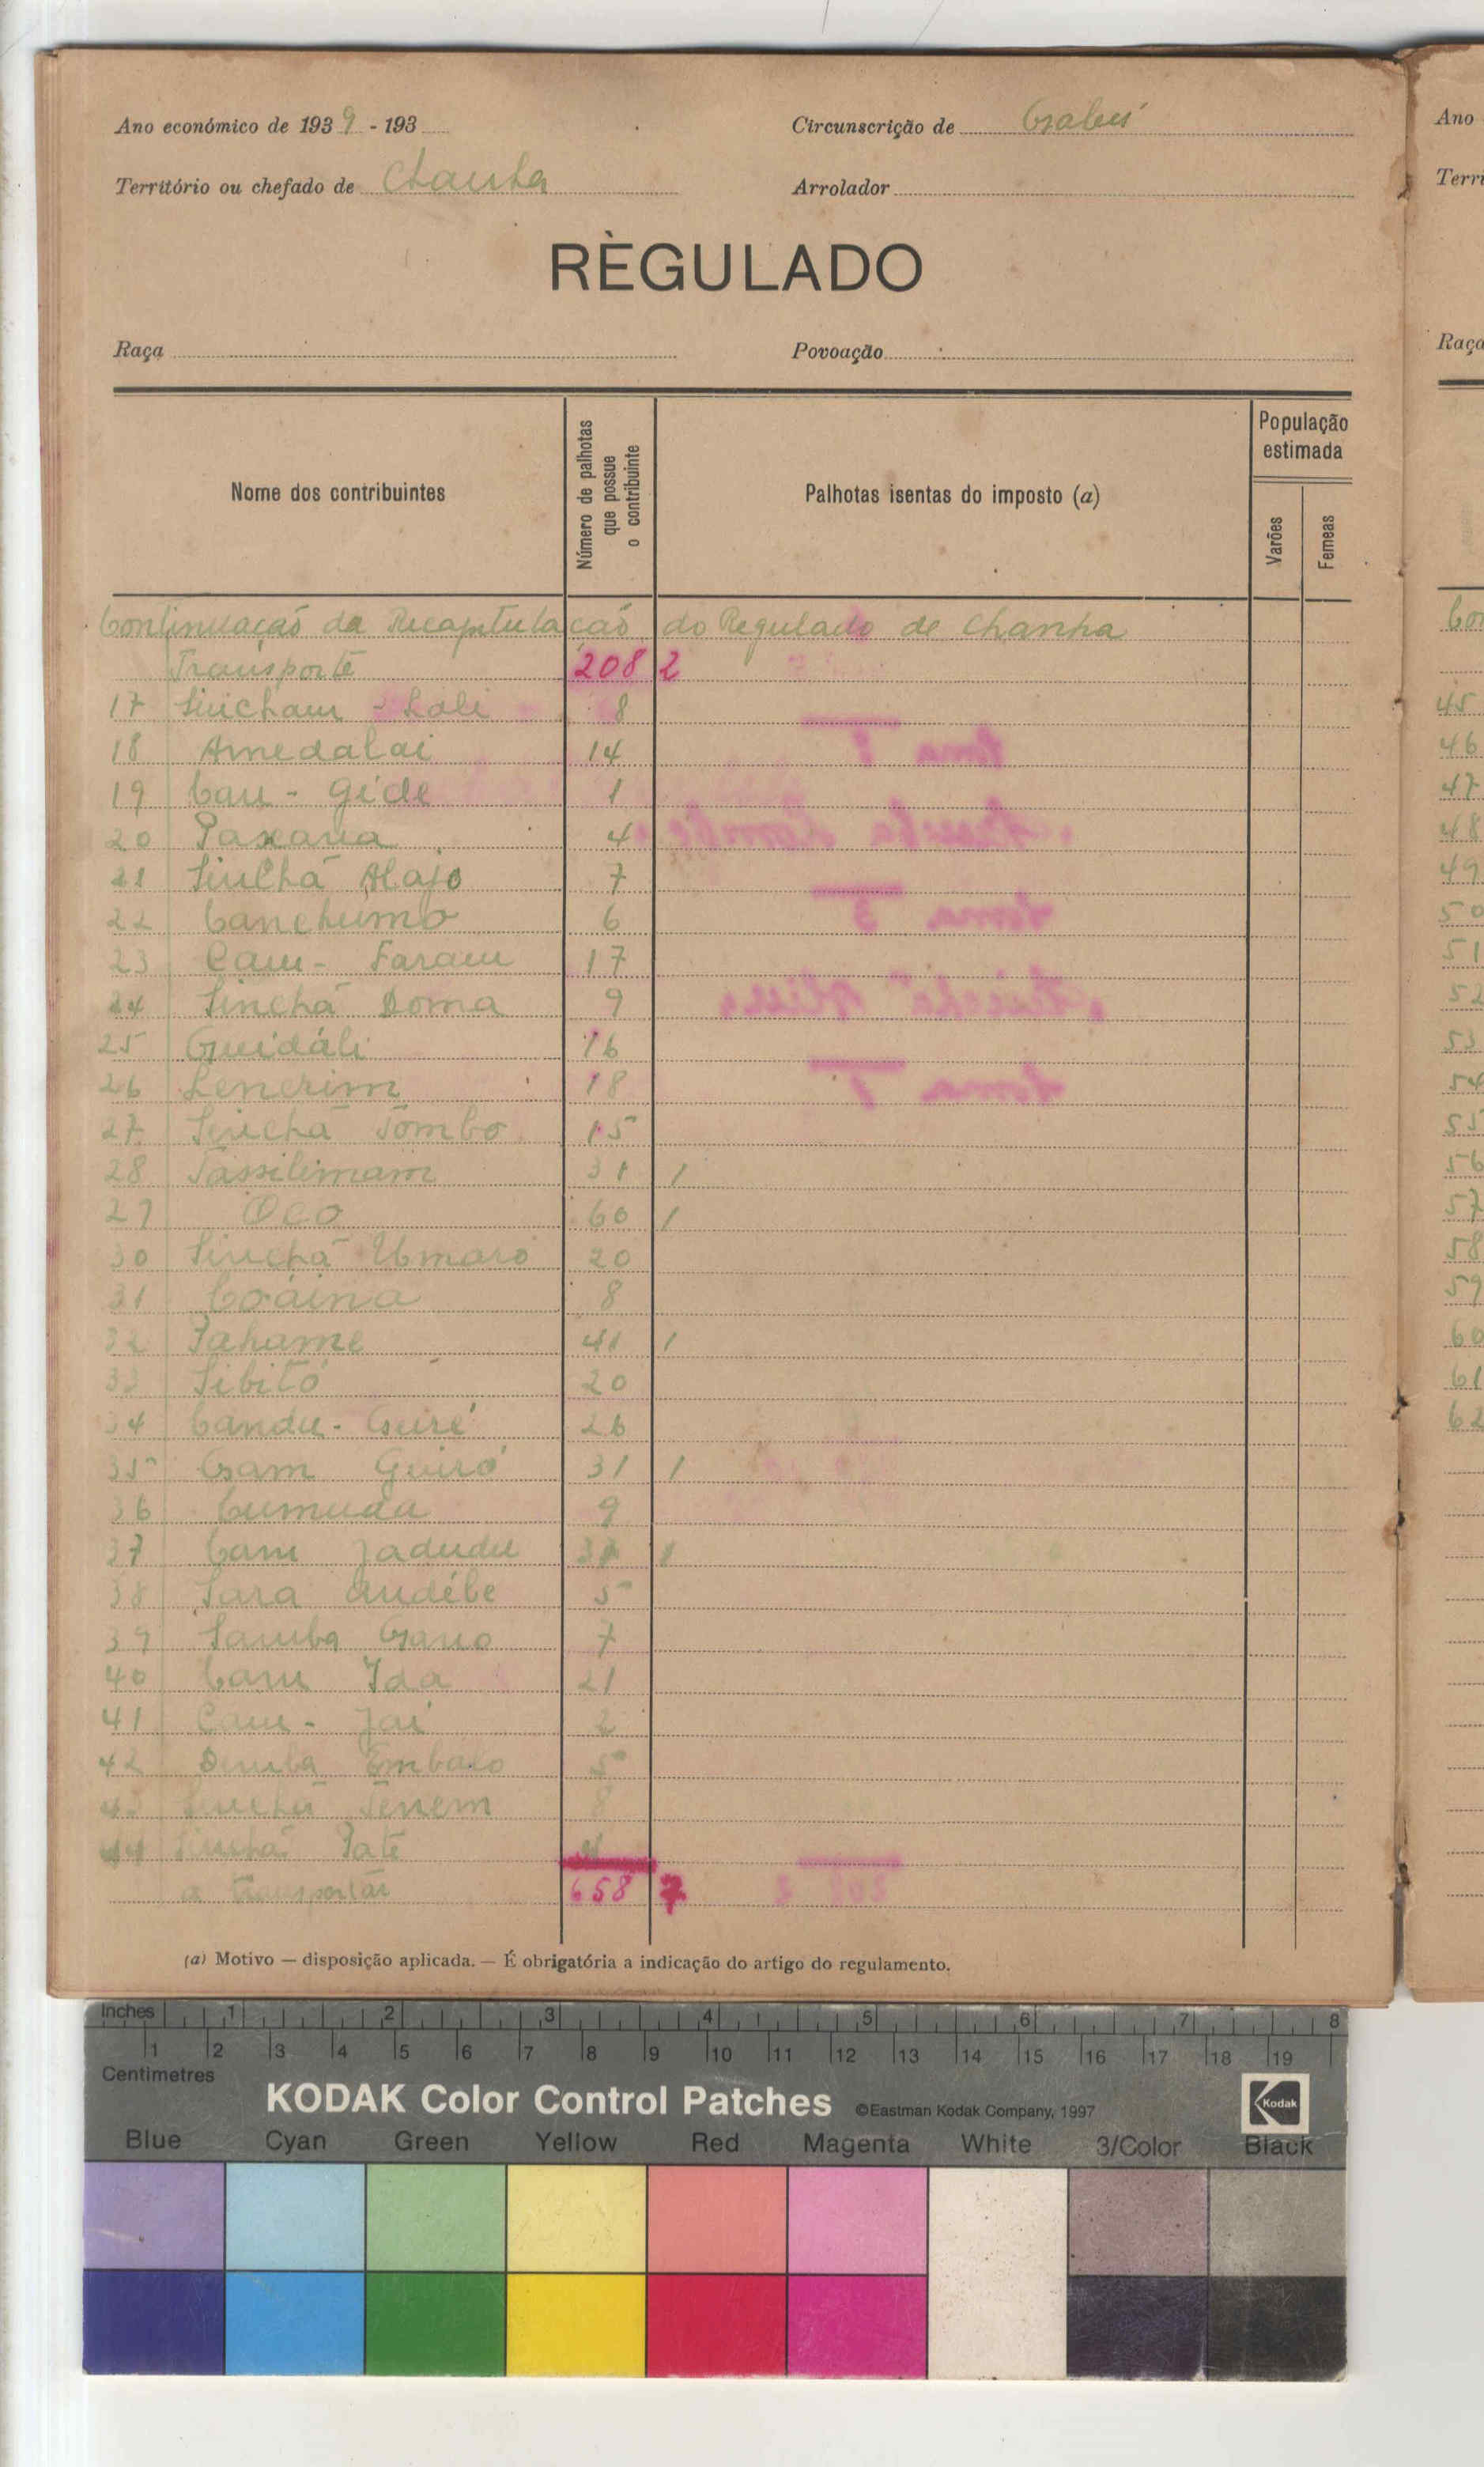 Ano económico de 1939 - 193
Circunscrição de Gabú
Território ou chefado de Chanha
Arrolador
RÈGULADO
Raça
Povoação
Nome dos contribuintes
Número de palhotas que possue o contribuinte
Palhotas isentas do imposto (a)
População estimada
Varões
Femeas
Continuação da Recapitulação do Regulado de Chanha
Transporte 208 2
17 Sincham - Lali 8
18 Amedalai 14
19 Cam - Gide 1
20 Paxana 4
21 Sinchá Alajo 7
22 Canchumo 6
23 Cam - Faram 17
24 Sinchá Doma 9
25 Guidáli 16
26 Lenerim 18
27 Sinchá Tombo 15
28 Tassilimam 31 1
29 Oco 60 1
30 Sinchá Umaro 20
31 Coáina 8
32 Pahame 41 1
33 Sibitó 20
34 Candu - Guiré 26
35 Gam Guiró 31 1
36 Cumuda 9
37 Cam Jadudu 1
38 Sara Andébe 5
39 Samba Gano 7
40 Cam Ida 21
41 Cam - Jai 2
42 Demba Embalo 5
43 Sinchá Tenem 8
44 Sinchá Paté
a transportar 658 7
(a) Motivo — disposição aplicada. — É obrigatória a indicação do artigo do regulamento.
Ano
Terri
Raça
Con
45
46
47
48
49
50
51
52
53
54
55
56
57
58
59
60
61
62
Inches 1 2 3 4 5 6 7 8
1 2 3 4 5 6 7 8 9 10 11 12 13 14 15 16 17 18 19
Centimetres
KODAK Color Control Patches ©Eastman Kodak Company, 1997 Kodak
Blue Cyan Green Yellow Red Magenta White 3/Color Black